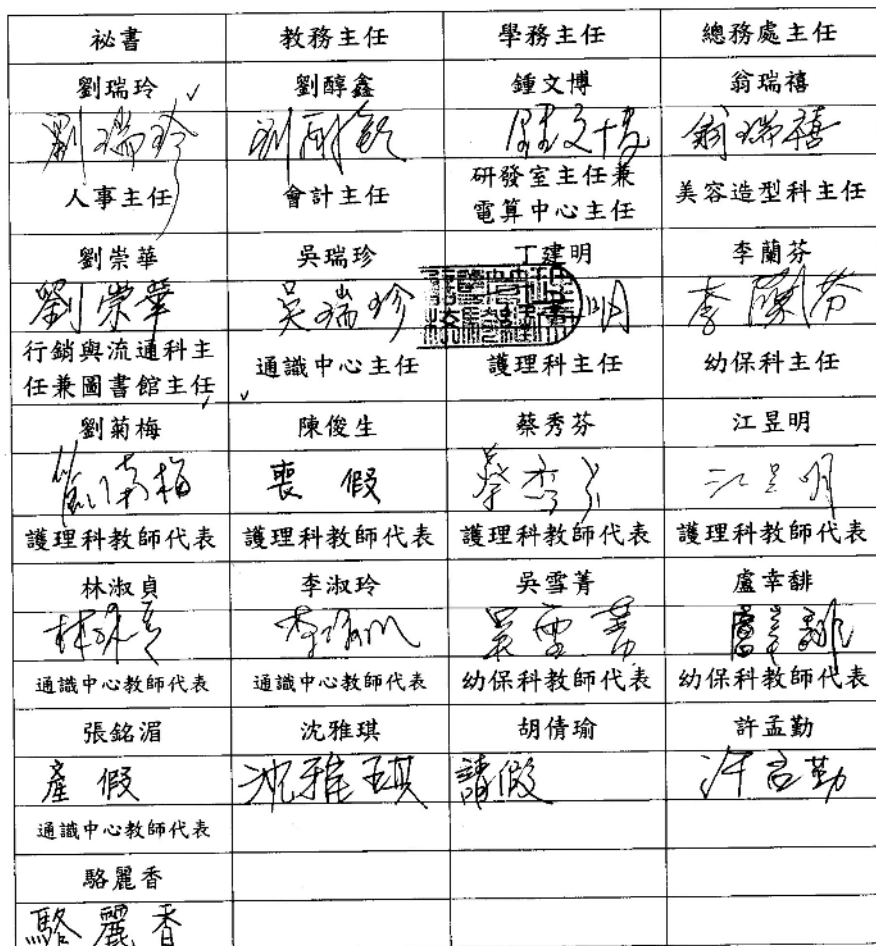 祕書 教務主任 學務主任 總務處主任
劉瑞玲 劉醇鑫 鍾文博 翁瑞禧
劉瑞玲 翁瑞禧
人事主任 會計主任 研發室主任兼 美容造型科主任
電算中心主任
劉崇華 吳瑞珍 丁建明 李蘭芬
劉崇華 吳瑞珍 明 李蘭芬
行銷與流通科主 通識中心主任 護理科主任 幼保科主任
任兼圖書館主任
劉菊梅 陳俊生 蔡秀芬 江昱明
劉菊梅 喪假 江昱明
護理科教師代表 護理科教師代表 護理科教師代表 護理科教師代表
林淑貞 李淑玲 吳雪菁 盧幸馡
林淑貞 吳雪菁
通識中心教師代表 通識中心教師代表 幼保科教師代表 幼保科教師代表
張銘湄 沈雅琪 胡倩瑜 許孟勤
產假 沈雅琪 請假 許孟勤
通識中心教師代表
駱麗香
駱麗香